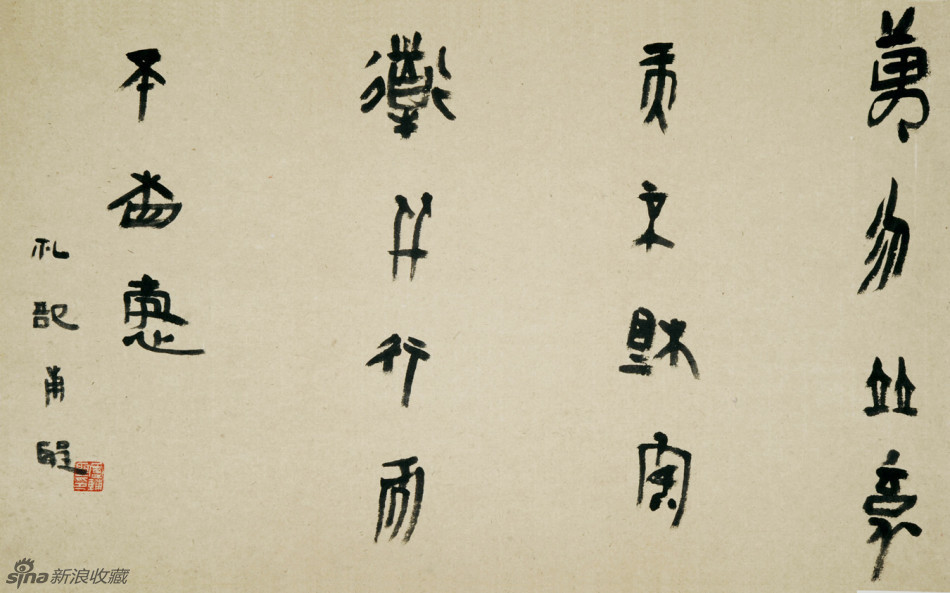 萬勿並育
而不相害
道並行而
不相悖
礼記
sina新浪收藏